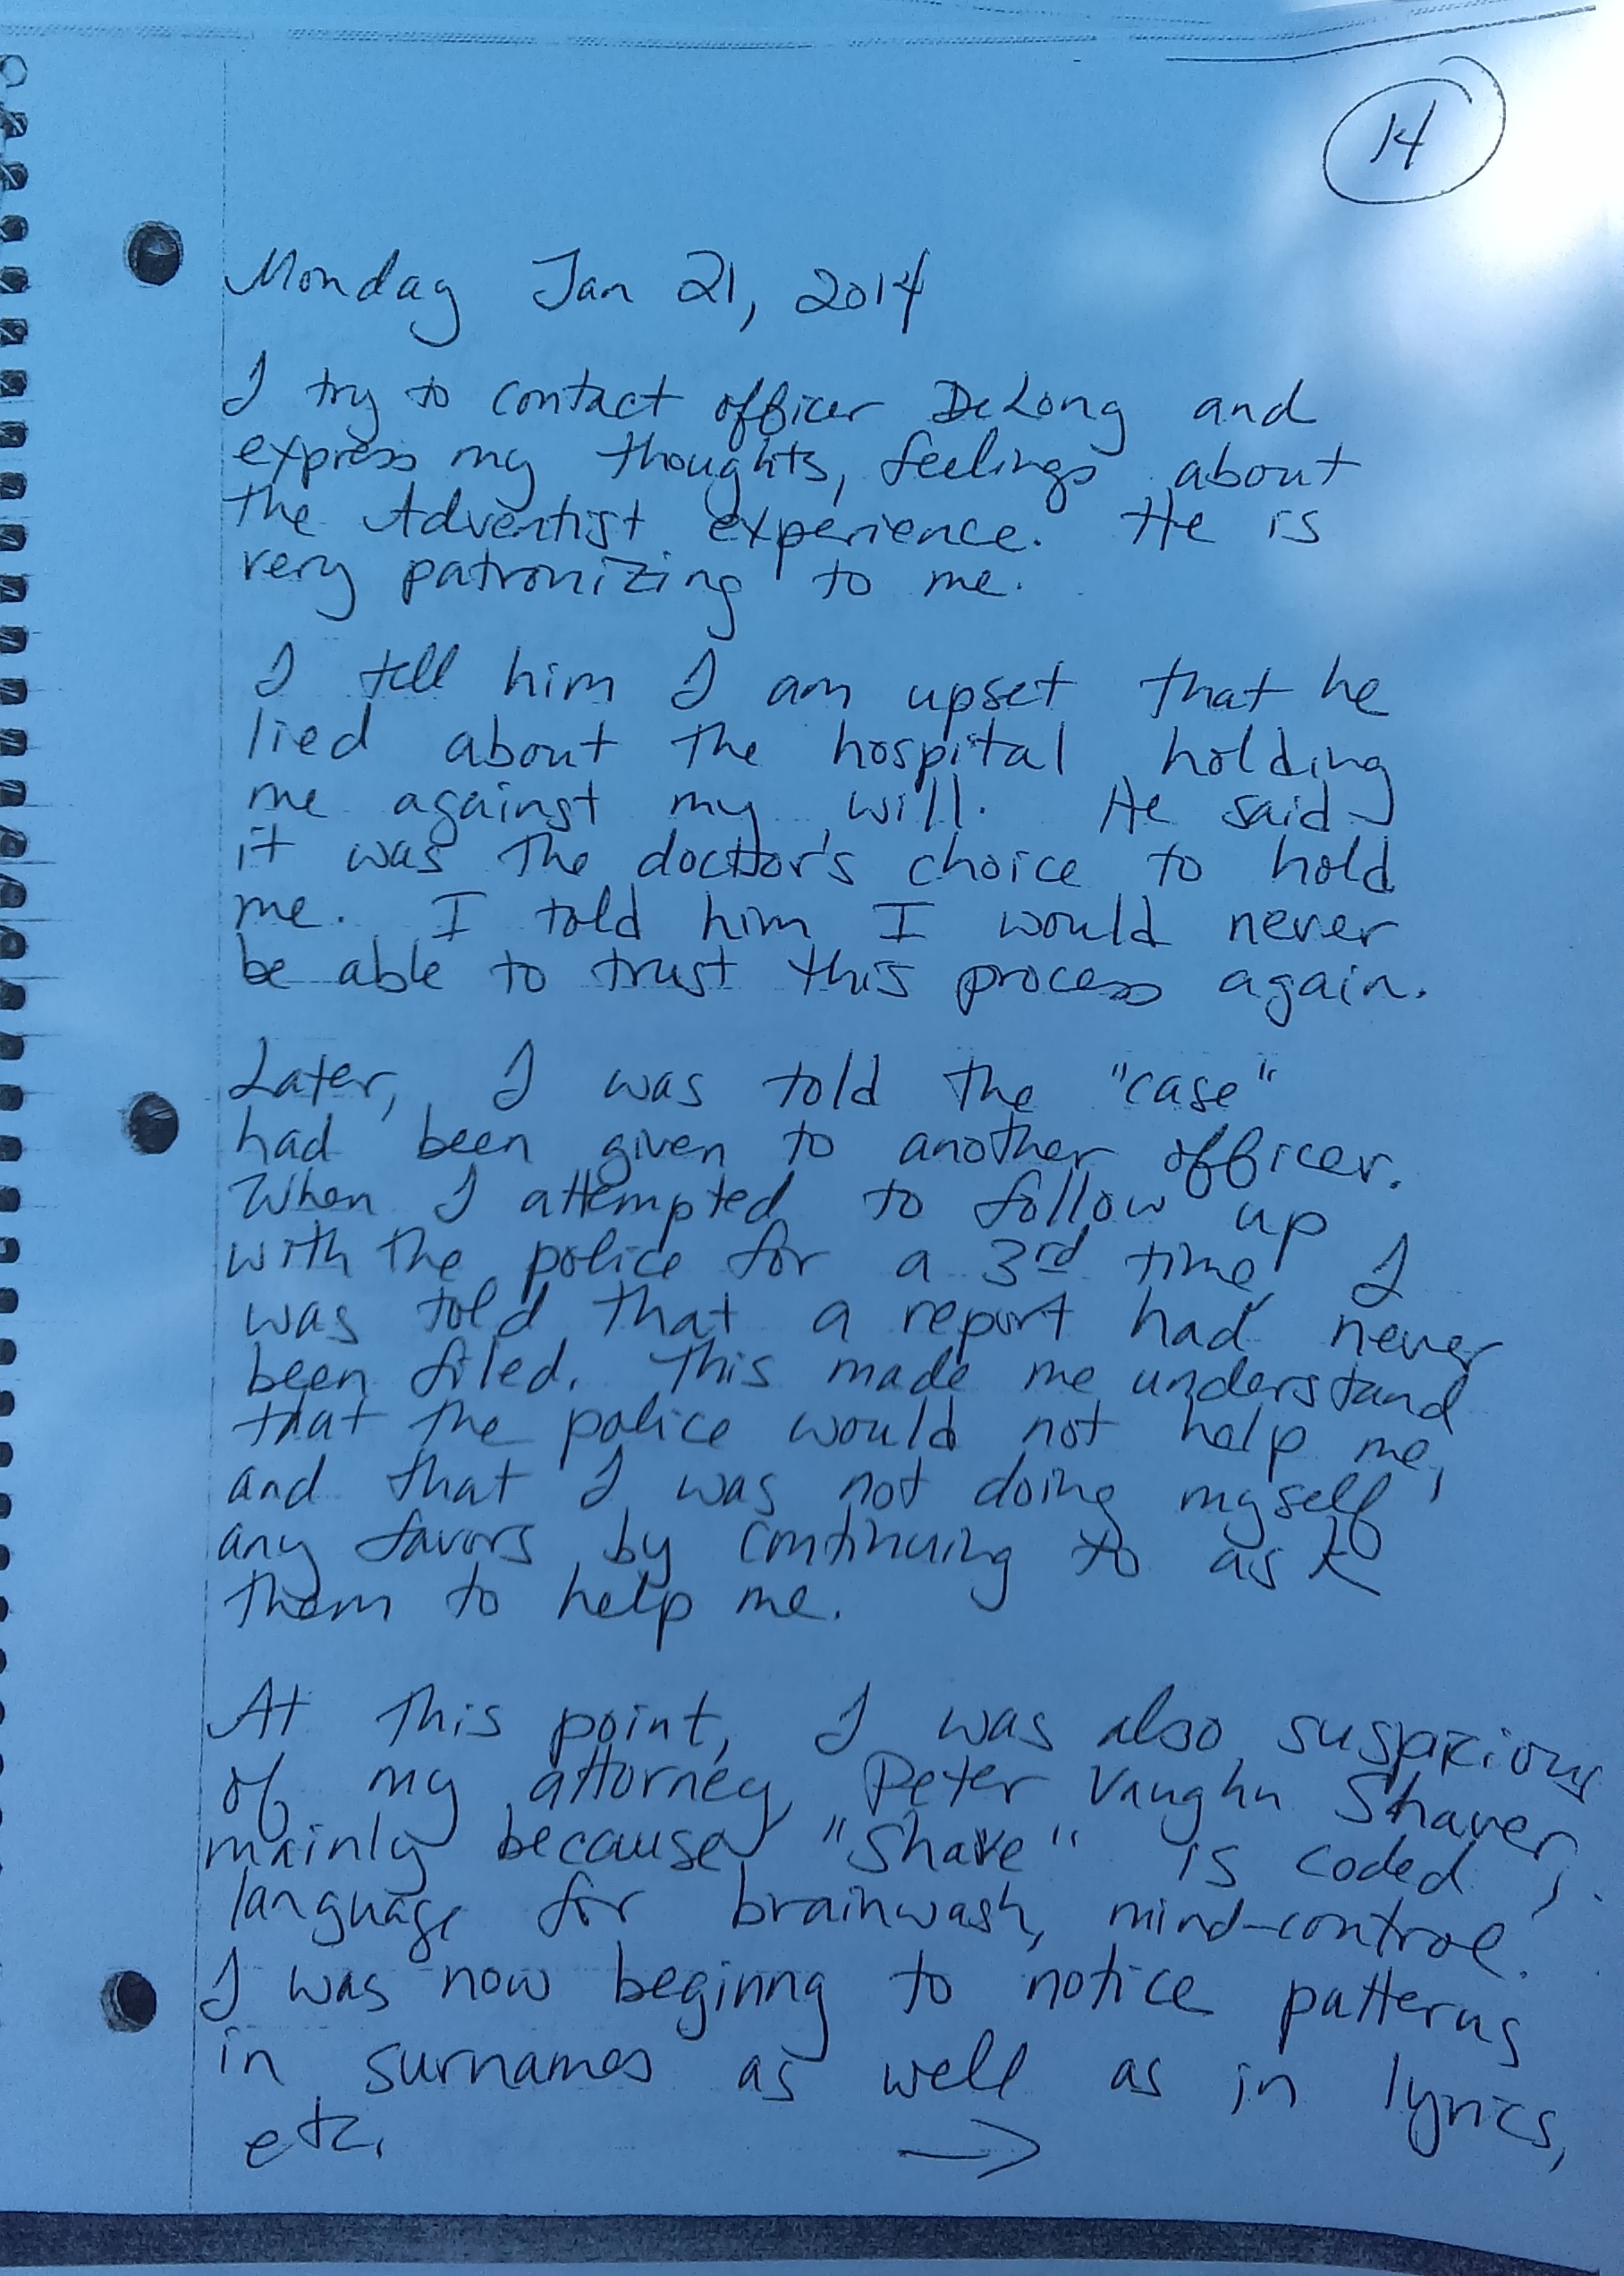 14
Monday Jan 21, 2014
I try to contact officer DeLong and
express my thoughts, feelings about
the Adventist experience. He is
very patronizing to me.
I tell him I am upset that he
lied about the hospital holding
me against my will. He said
it was the doctor's choice to hold
me. I told him I would never
be able to trust this process again.
Later, I was told the "case"
had been given to another officer.
When I attempted to follow up
with the police for a 3rd time, I
was told that a report had never
been filed. This made me understand
that the police would not help me,
and that I was not doing myself
any favors by continuing to ask
them to help me.
At this point, I was also suspicious
of my attorney, Peter Vaughn Shaver,
mainly because "Shave" is coded
language for brainwash, mind-control.
I was now beginng to notice patterns
in surnames as well as in lyrics,
etc. →